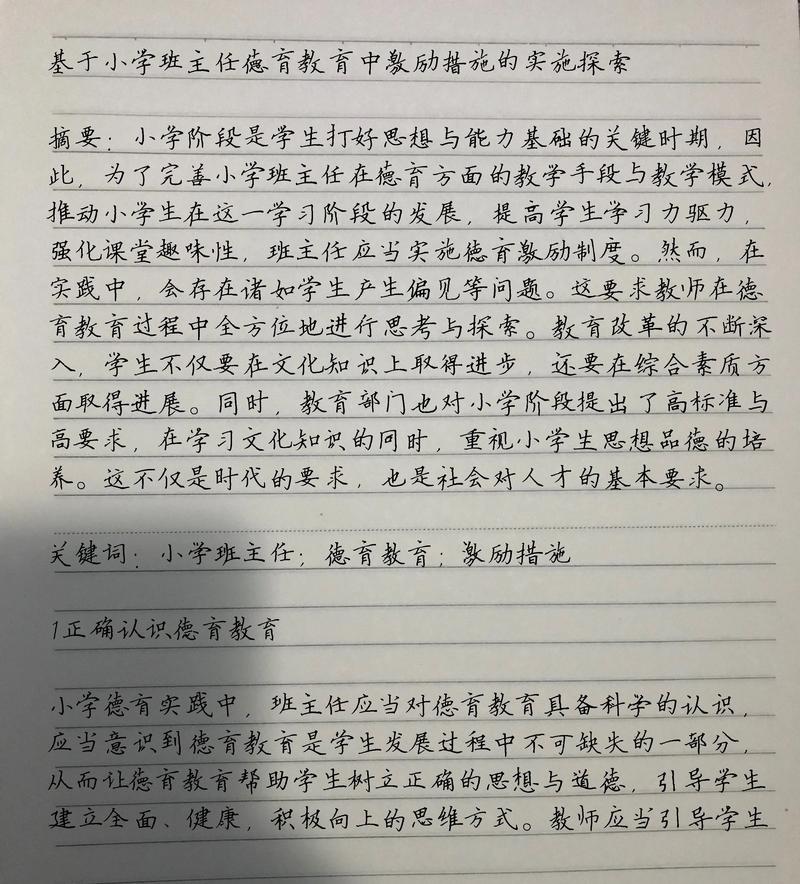 基于小学班主任德育教育中激励措施的实施探索
摘要：小学阶段是学生打好思想与能力基础的关键时期，因
此，为了完善小学班主任在德育方面的教学手段与教学模式，
推动小学生在这一学习阶段的发展，提高学生学习力驱力，
强化课堂趣味性，班主任应当实施德育激励制度。然而，在
实践中，会存在诸如学生产生偏见等问题。这要求教师在德
育教育过程中全方位地进行思考与探索。教育改革的不断深
入，学生不仅要在文化知识上取得进步，还要在综合素质方
面取得进展。同时，教育部门也对小学阶段提出了高标准与
高要求，在学习文化知识的同时，重视小学生思想品德的培
养。这不仅是时代的要求，也是社会对人才的基本要求。
关键词：小学班主任；德育教育；激励措施
1正确认识德育教育
小学德育实践中，班主任应当对德育教育具备科学的认识，
应当意识到德育教育是学生发展过程中不可缺失的一部分，
从而让德育教育帮助学生树立正确的思想与道德，引导学生
建立全面、健康，积极向上的思维方式。教师应当引导学生